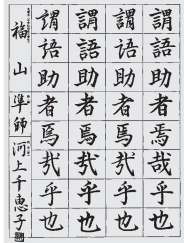 謂語助者焉哉乎也
謂語助者焉哉乎也
謂語助者焉哉乎也
謂語助者焉哉乎也
福山 準師 河上千恵子